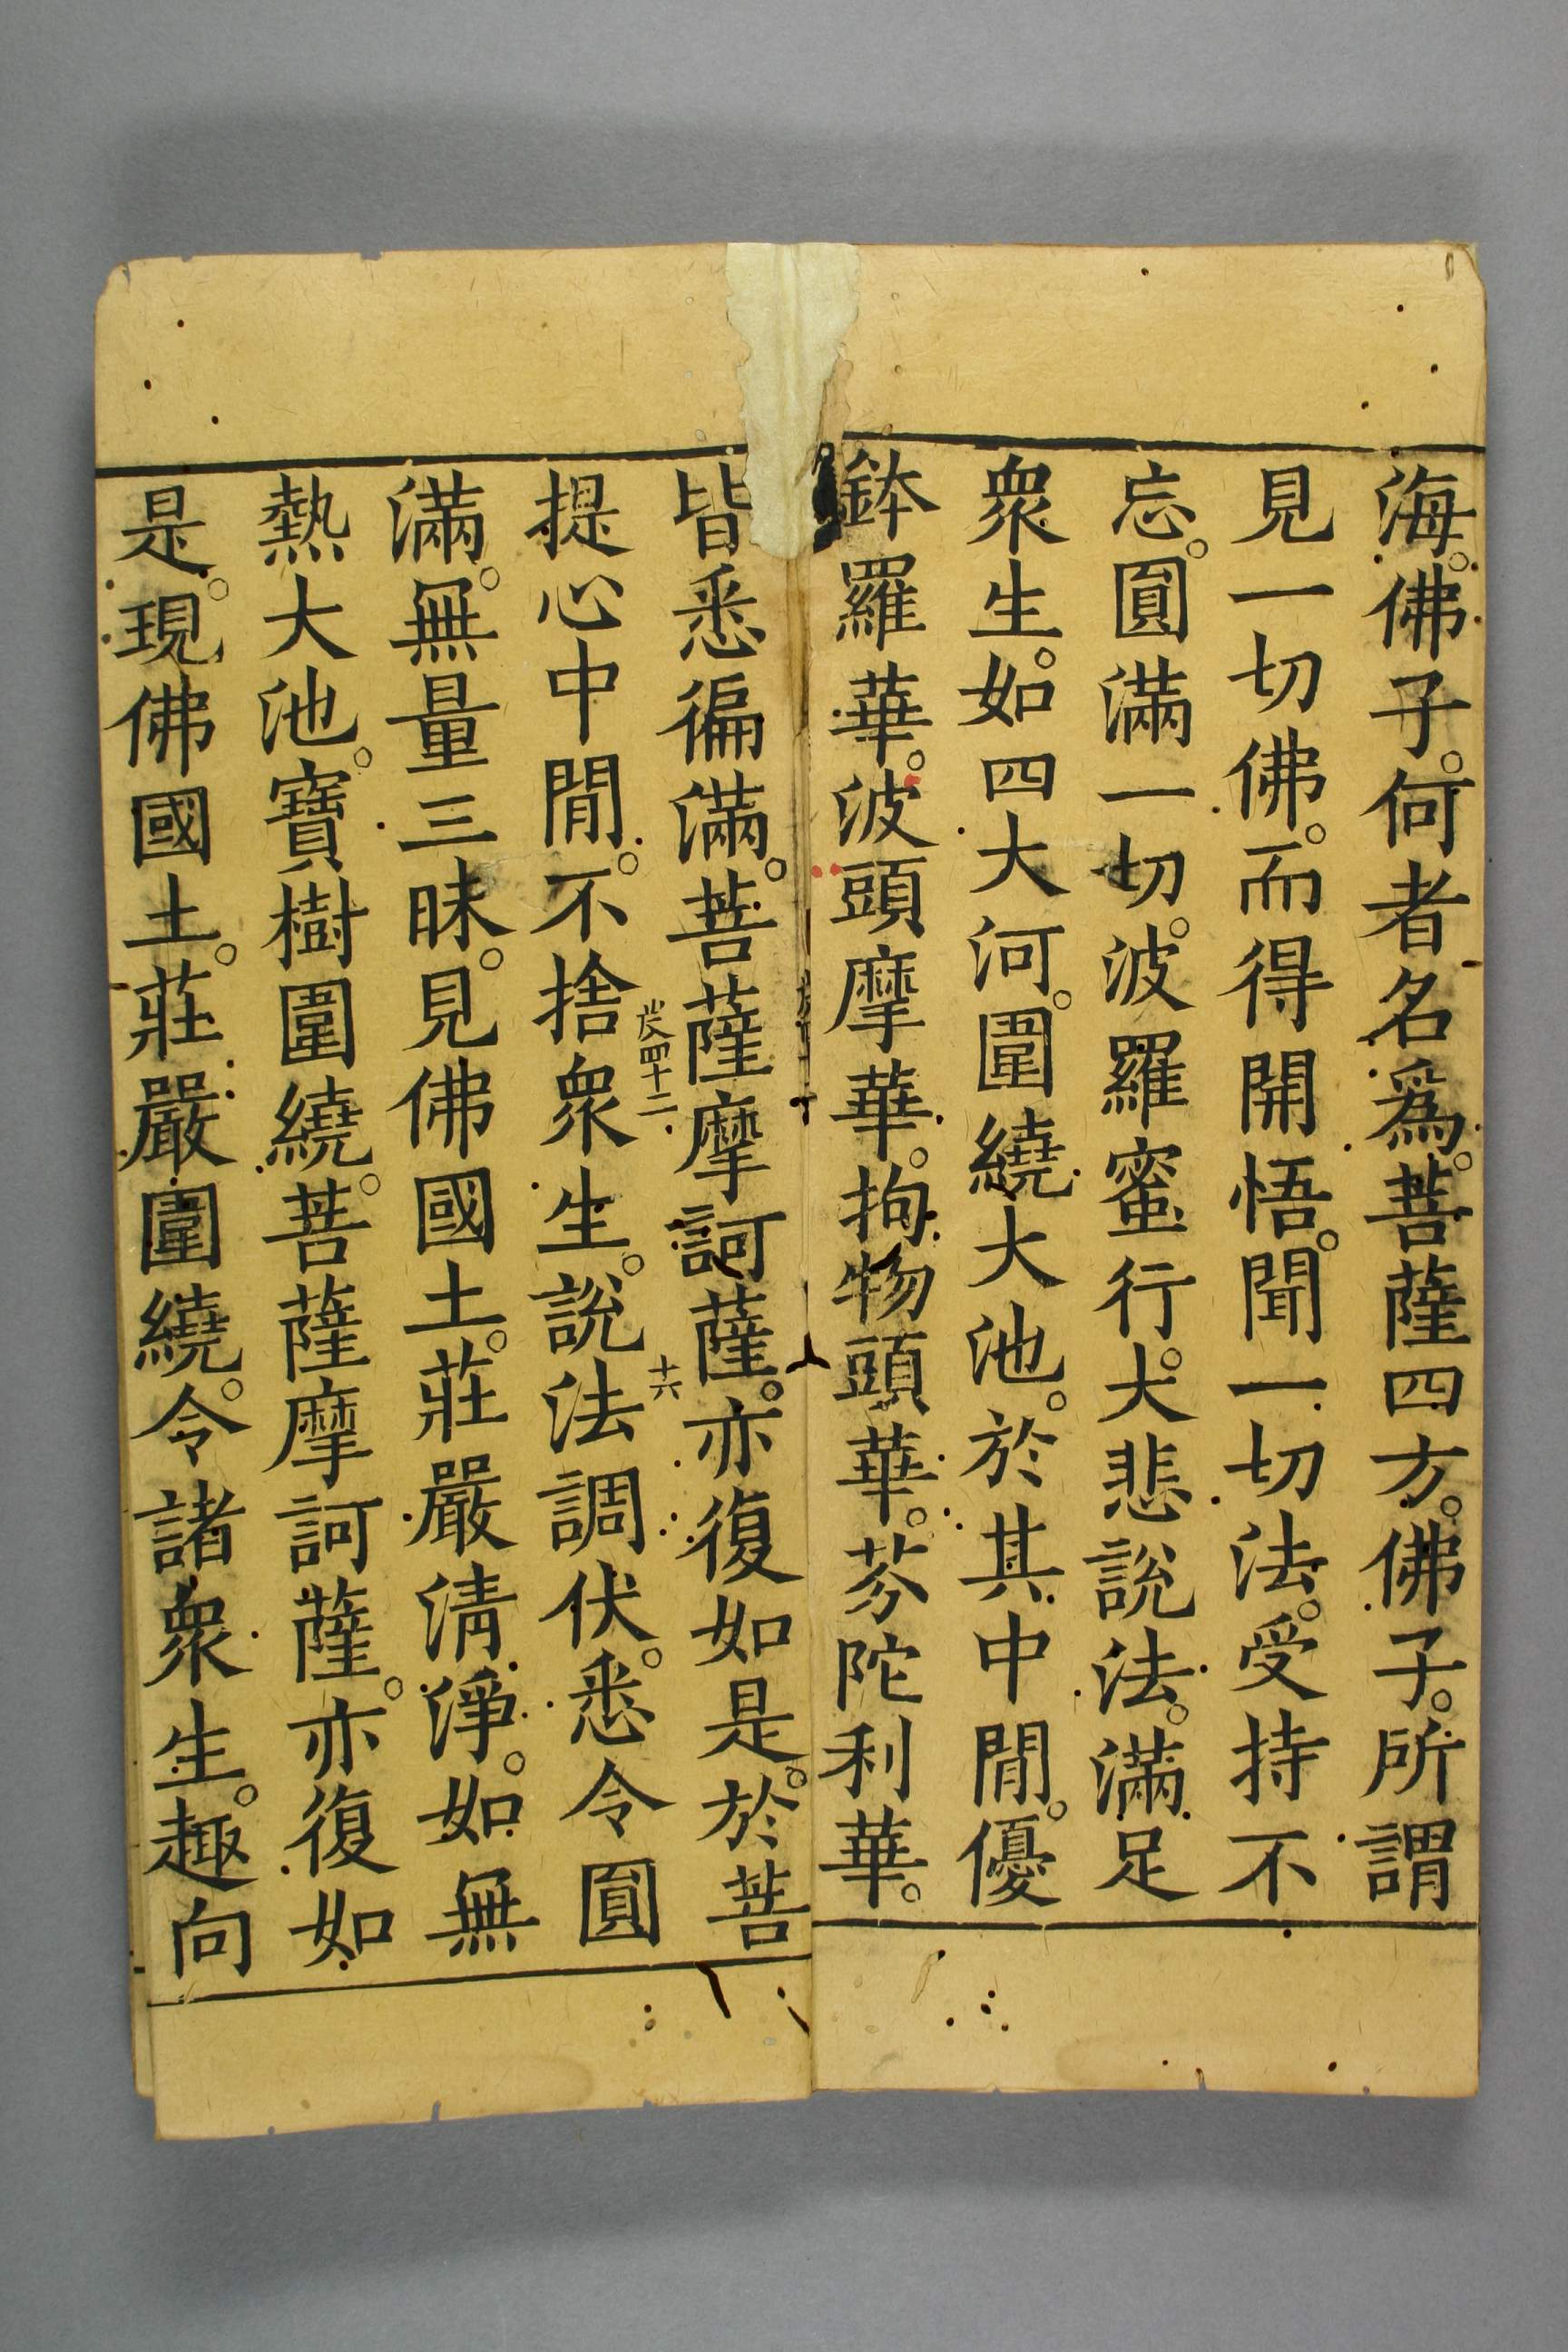 海。佛子。何者名爲。菩薩四方。佛子。所謂
見一切佛。而得開悟。聞一切法。受持不
忘。圓滿一切。波羅蜜行。大悲說法。滿足
衆生。如四大河。圍繞大池。於其中閒。優
鉢羅華。波頭摩華。拘物頭華。芬陀利華。
皆悉徧滿。菩薩摩訶薩。亦復如是。於菩
提心中閒。不捨衆生。說法調伏。悉令圓
滿。無量三昧。見佛國土。莊嚴淸淨。如無
熱大池。寶樹圍繞。菩薩摩訶薩。亦復如
是。現佛國土。莊嚴圍繞。令諸衆生。趣向
四十二
十六